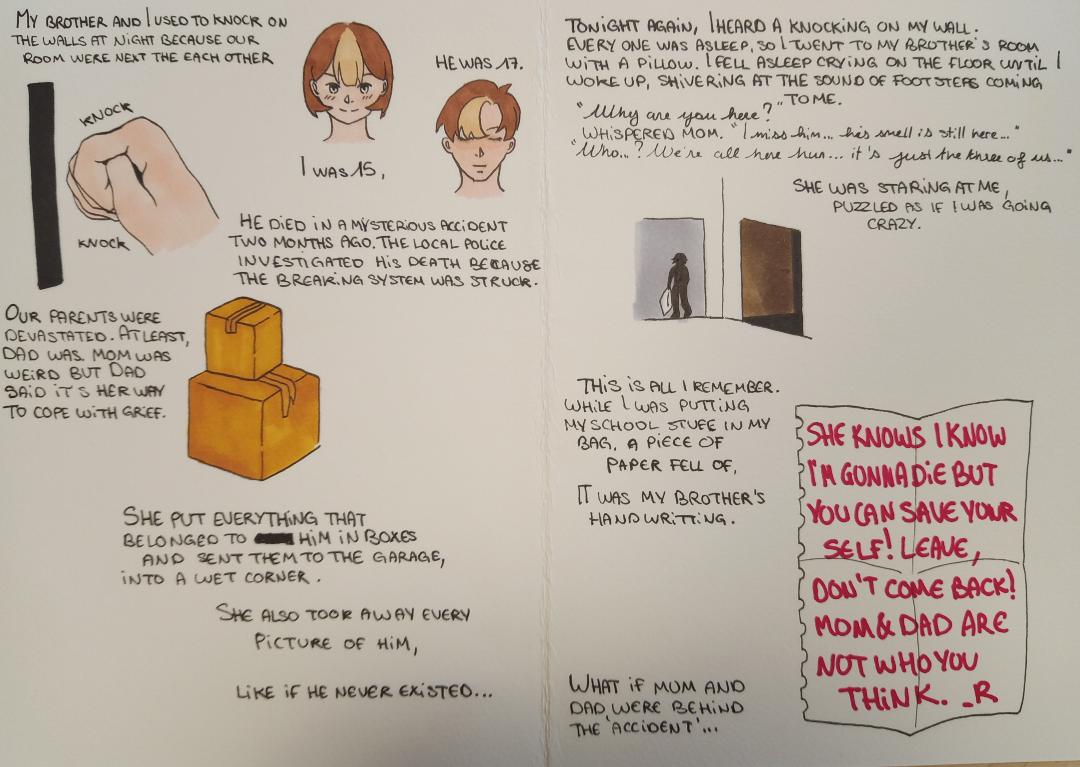 MY BROTHER AND I USED TO KNOCK ON
THE WALLS AT NIGHT BECAUSE OUR
ROOM WERE NEXT THE EACH OTHER
KNOCK
KNOCK
I WAS 15,
HE WAS 17.
HE DIED IN A MYSTERIOUS ACCIDENT
TWO MONTHS AGO. THE LOCAL POLICE
INVESTIGATED HIS DEATH BECAUSE
THE BREAKING SYSTEM WAS STRUCK.
OUR PARENTS WERE
DEVASTATED. AT LEAST,
DAD WAS. MOM WAS
WEIRD BUT DAD
SAID IT'S HER WAY
TO COPE WITH GRIEF.
SHE PUT EVERYTHING THAT
BELONGED TO HIM IN BOXES
AND SENT THEM TO THE GARAGE,
INTO A WET CORNER.
SHE ALSO TOOK AWAY EVERY
PICTURE OF HIM,
LIKE IF HE NEVER EXISTED...
TONIGHT AGAIN, I HEARD A KNOCKING ON MY WALL.
EVERY ONE WAS ASLEEP, SO I WENT TO MY BROTHER'S ROOM
WITH A PILLOW. I FELL ASLEEP CRYING ON THE FLOOR UNTIL I
WOKE UP, SHIVERING AT THE SOUND OF FOOTSTEPS COMING
TO ME.
"Why are you here?"
WHISPERED MOM. "I miss him... his smell is still here..."
"Who...? We're all here hun... it's just the three of us..."
SHE WAS STARING AT ME,
PUZZLED AS IF I WAS GOING
CRAZY.
THIS IS ALL I REMEMBER.
WHILE I WAS PUTTING
MY SCHOOL STUFF IN MY
BAG, A PIECE OF
PAPER FELL OF,
IT WAS MY BROTHER'S
HANDWRITTING.
SHE KNOWS I KNOW
I'M GONNA DIE BUT
YOU CAN SAVE YOUR
SELF! LEAVE,
DON'T COME BACK!
MOM & DAD ARE
NOT WHO YOU
THINK. _R
WHAT IF MUM AND
DAD WERE BEHIND
THE 'ACCIDENT'...